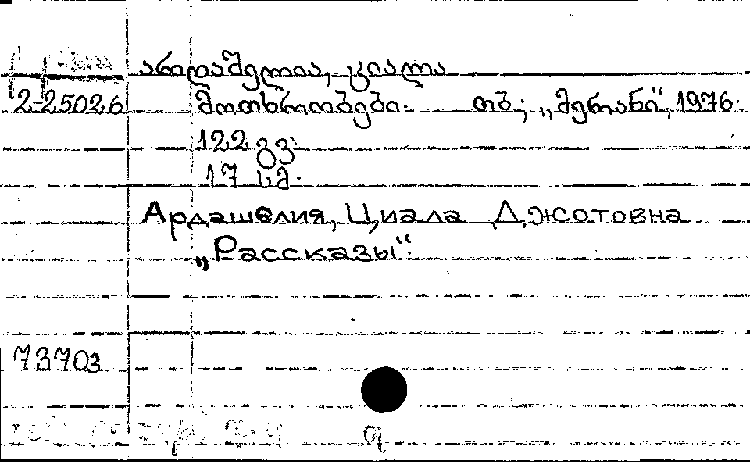 არდაშელია, ციალა
2-25026 მოთხრობები. თბ; „მერანი“, 1976.
122 გვ.
17 სმ.
Ардашелия, Циала Джотовна
„Рассказы“.
73703